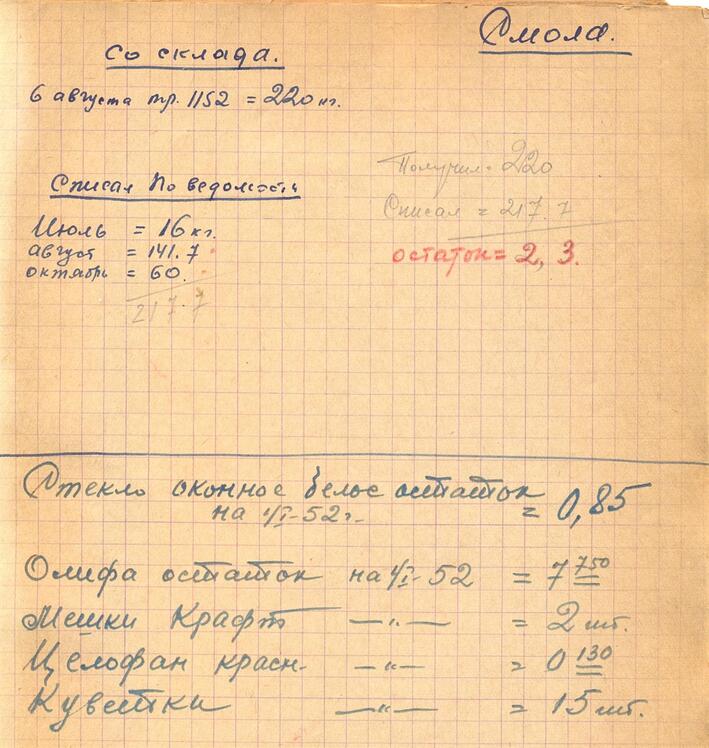 Смола.
Со склада.
6 августа тр. 1152 = 220 кг.
Получил = 220
Списал = 217.7
остаток = 2,3.
Списал по ведомости
Июль = 16 кг.
август = 141.7
октябрь = 60.
217.7
Стекло оконное белое остаток
на 1/I-52г. = 0,85
Олифа остаток на 1/I-52 = 7 750
Мешки Крафт —"— = 2 шт.
Целофан красн. —"— = 0 130
Куветки —"— = 15 шт.